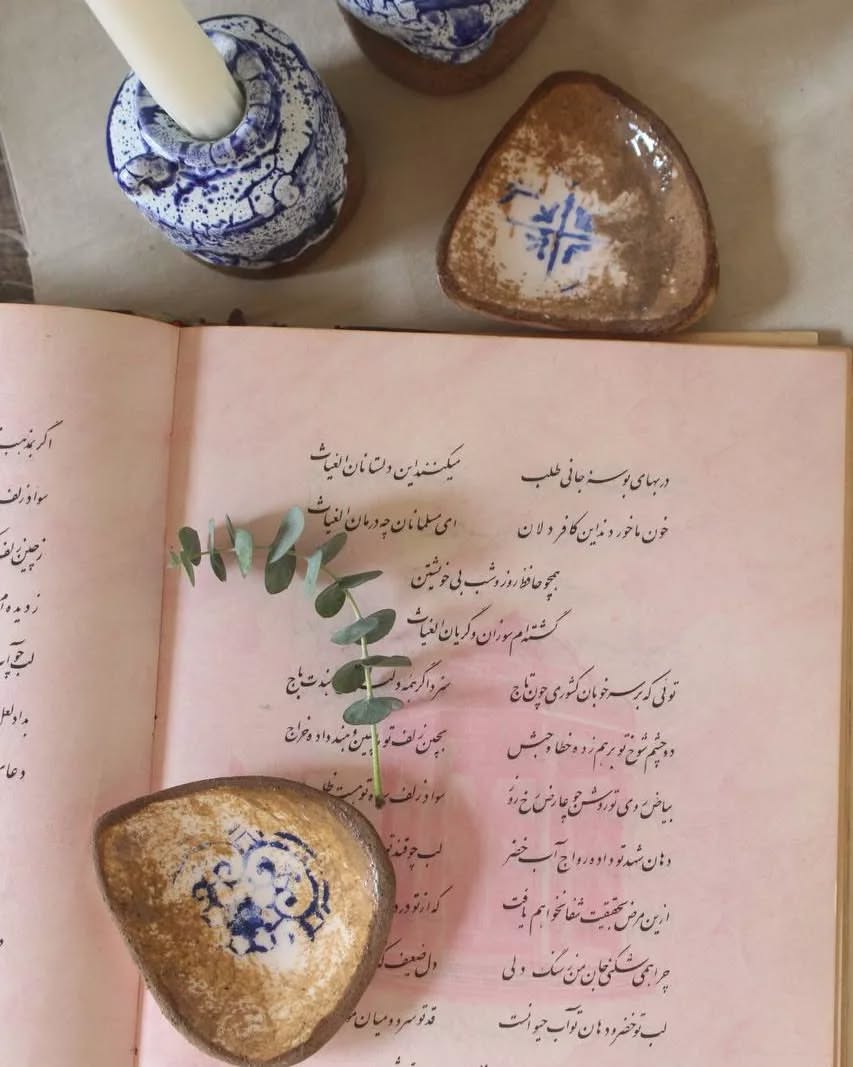 دربهای بوسه جانی طلب میکنند این دلستانان الغیاث
خون ما خوردند این کافر دلان ای مسلمانان چه درمان الغیاث
همچو حافظ روز و شب بی خویشتن
گشته‌ام سوزان و گریان الغیاث
توئی که بر سر خوبان کشوری چون تاج سزد اگر همه دلبران دهندت باج
دو چشم شوخ تو برهم زده خطا و حبش بچین زلف تو ماچین و هند داده خراج
بیاض روی تو روشن چو عارض رخ روز سواد زلف تو هست
دهان شهد تو داده رواج آب خضر لب چو قند تو
ازین مرض بحقیقت شفا نخواهم یافت که از تو درد
چرا همی شکنی جان من ز سنگ دلی دل ضعیف که
لب تو خضر و دهان تو آب حیوانست قد تو سرو و میان
اگر بمذهب
سواد زلف
ز چین زلف
ز دیده ام
لب چو آب
بداد لعل
دعای